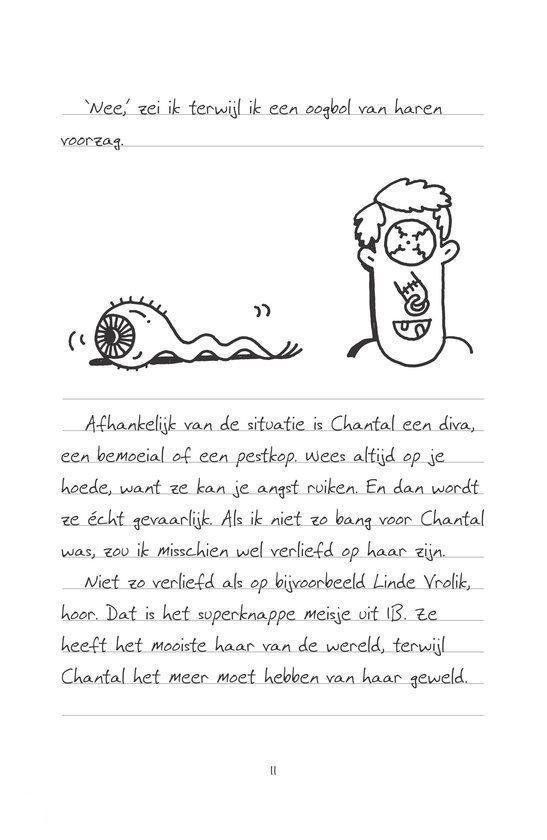 'Nee,' zei ik terwijl ik een oogbol van haren
voorzag.
Afhankelijk van de situatie is Chantal een diva,
een bemoeial of een pestkop. Wees altijd op je
hoede, want ze kan je angst ruiken. En dan wordt
ze écht gevaarlijk. Als ik niet zo bang voor Chantal
was, zou ik misschien wel verliefd op haar zijn.
Niet zo verliefd als op bijvoorbeeld Linde Vrolik,
hoor. Dat is het superknappe meisje uit 1B. Ze
heeft het mooiste haar van de wereld, terwijl
Chantal het meer moet hebben van haar geweld.
11